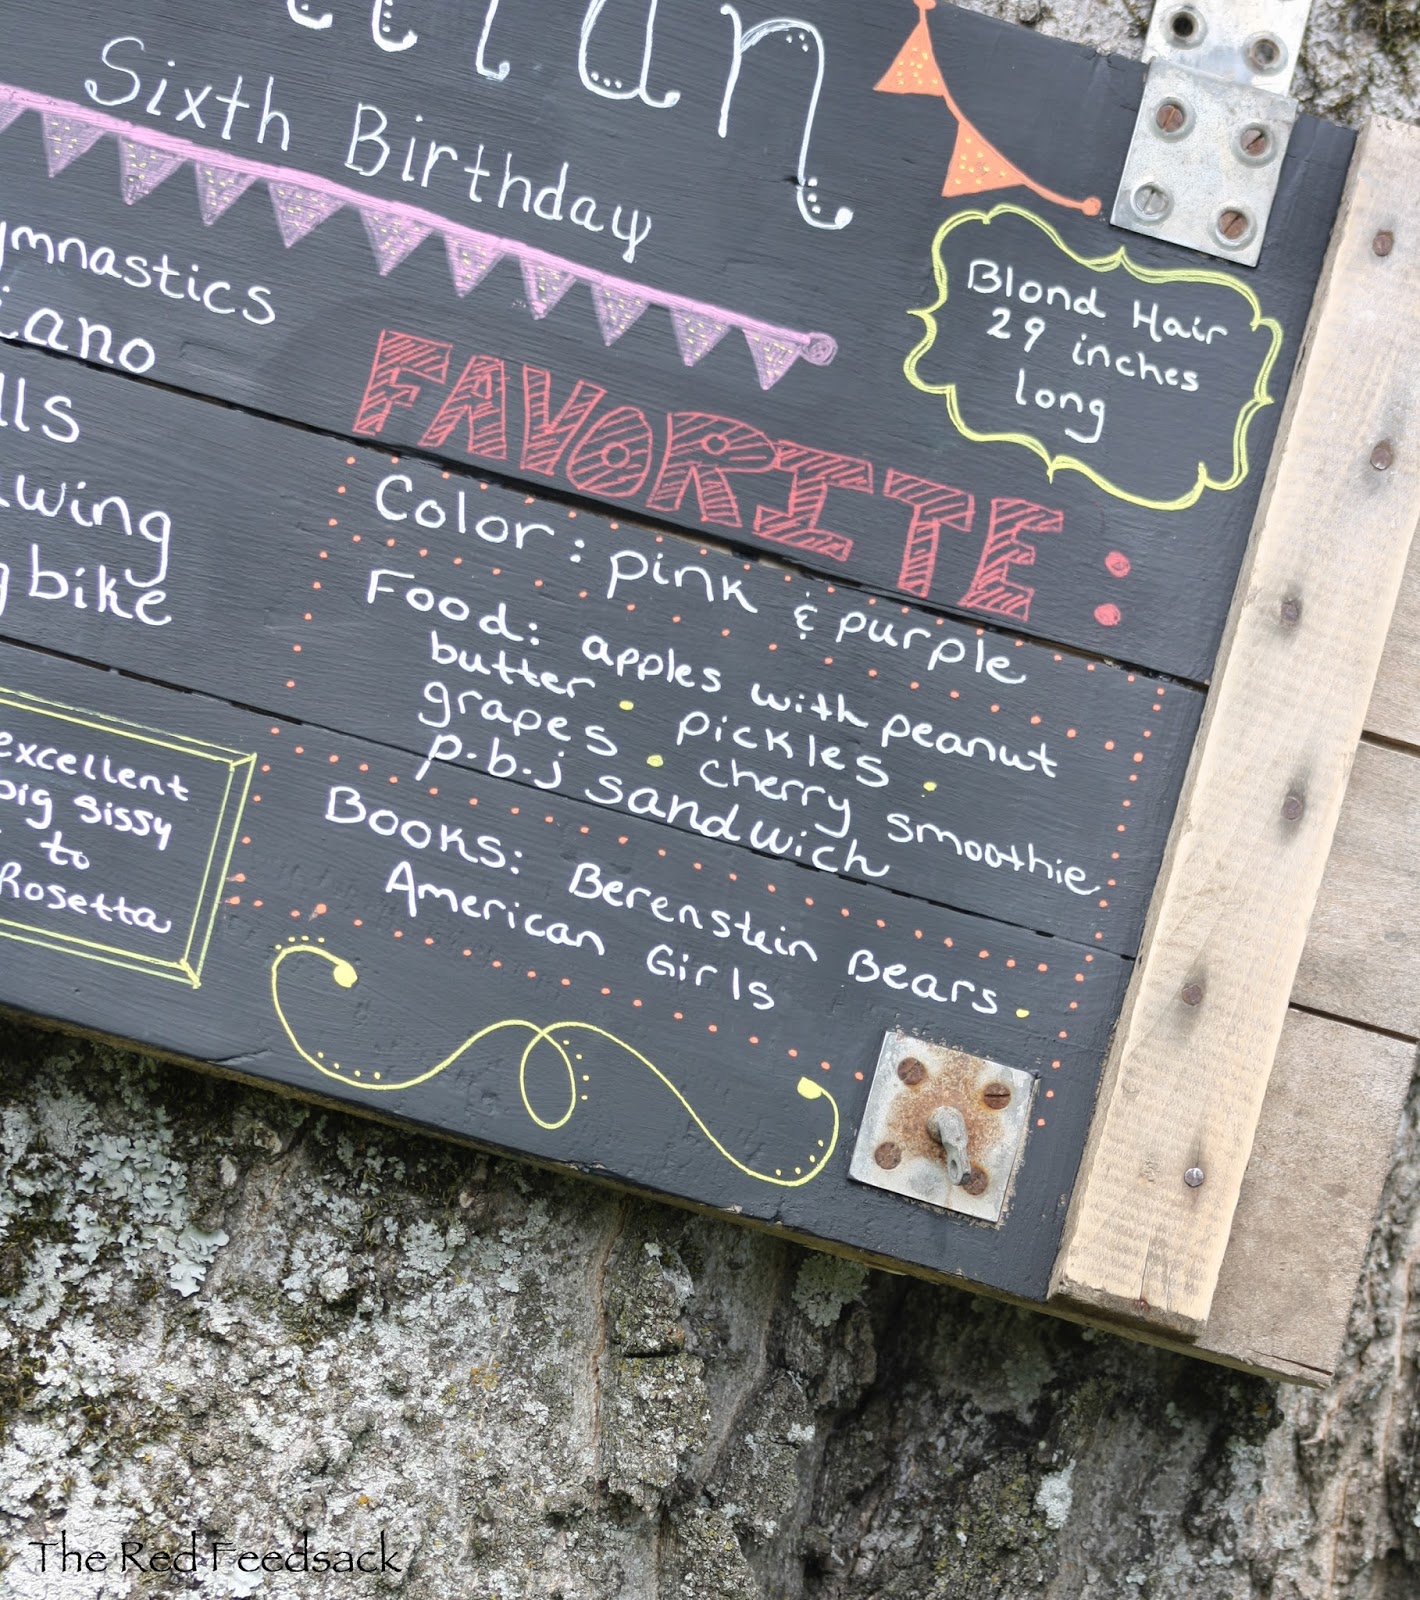 Sixth Birthday
Blond Hair
29 inches
long
FAVORITE:
Color: pink & purple
Food: apples with peanut
butter • pickles •
grapes • cherry smoothie
p.b.j sandwich
Books: Berenstein Bears •
American Girls
bike
excellent
big sissy
to
Rosetta
The Red Feedsack